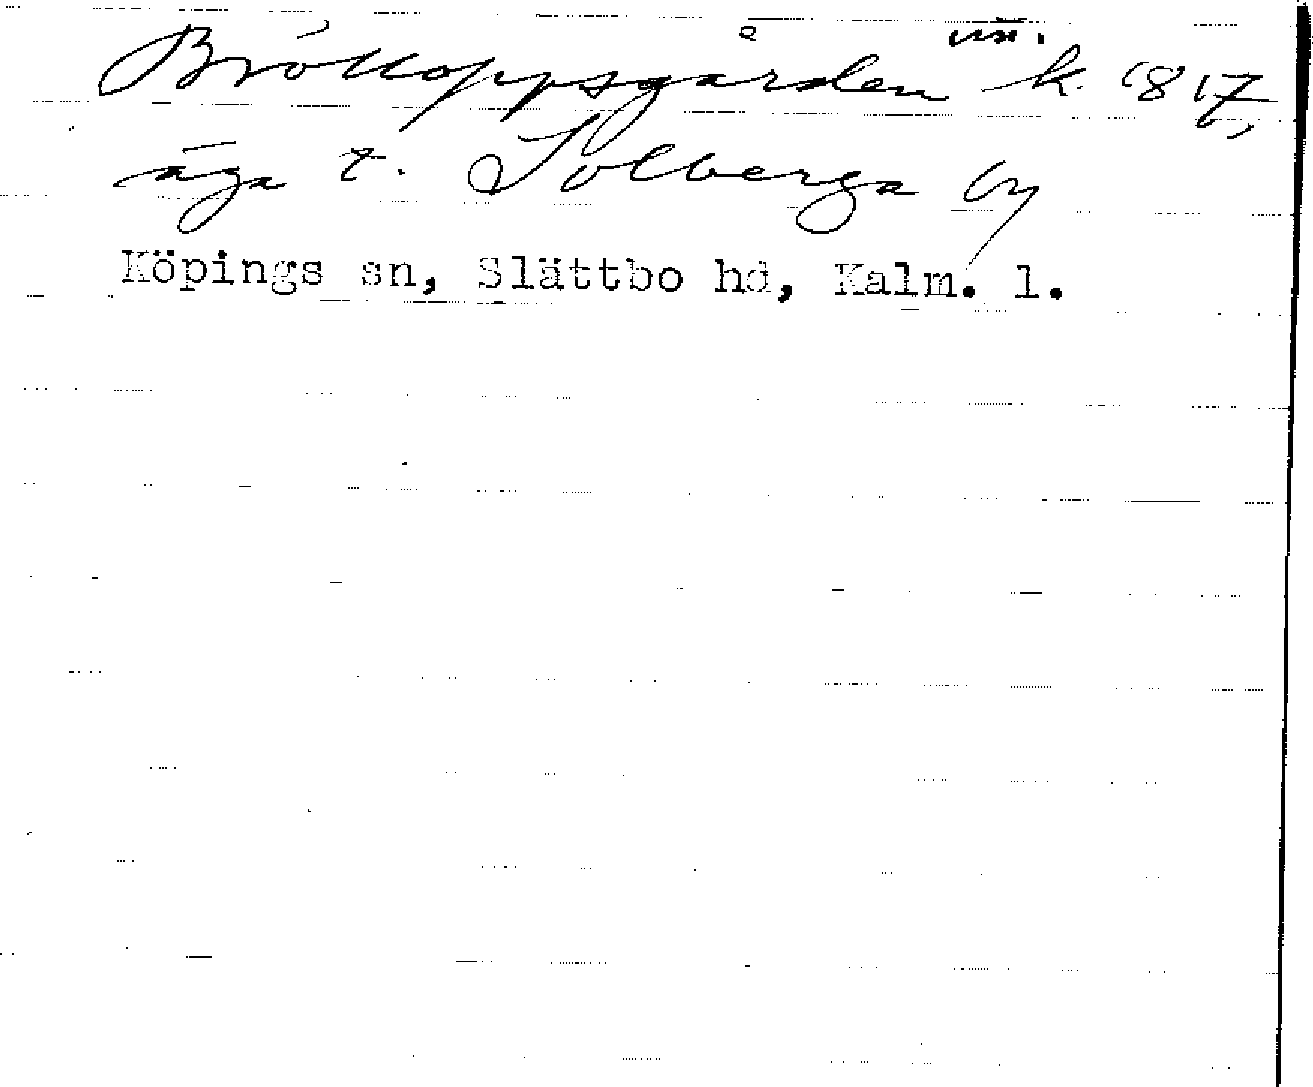 Brölloppsgården k. 1817,
äga t. Solberga by
Köpings sn, Slättbo hd, Kalm. l.